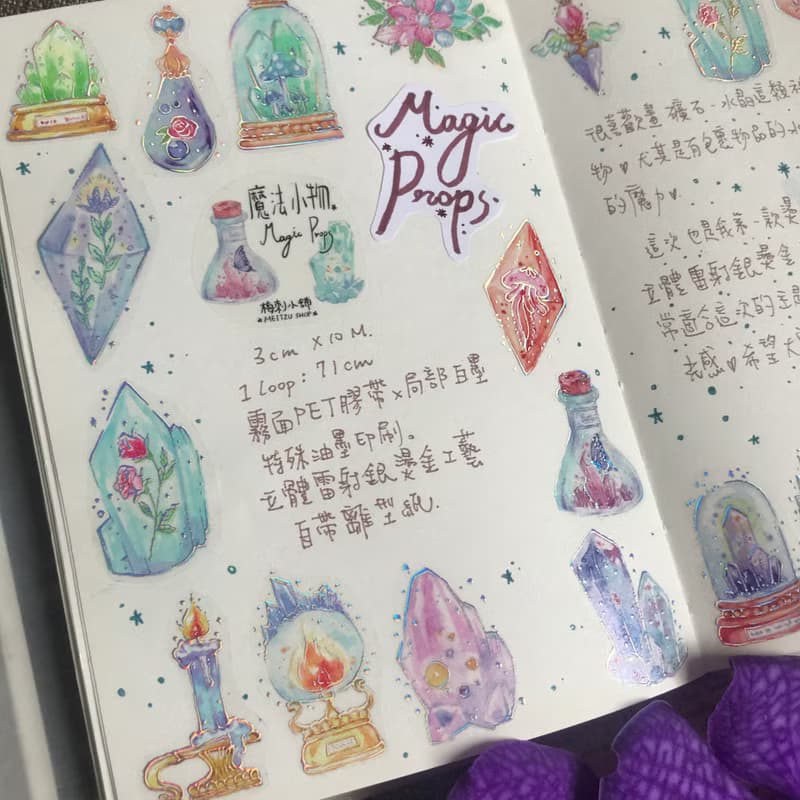 Magic
Props.
魔法小物。
Magic Props
梅刺小舖
MEITZU SHOP
3cm x 10 M.
1 loop: 71cm
霧面PET膠帶×局部白墨
特殊油墨印刷。
立體雷射銀燙金工藝
自帶離型紙.
很喜歡畫礦石、水晶這類
物♥尤其是有包裹物品的水
的魔力♥
這次也是我第一款燙
立體雷射銀燙金
常適合這次的主題
希望大